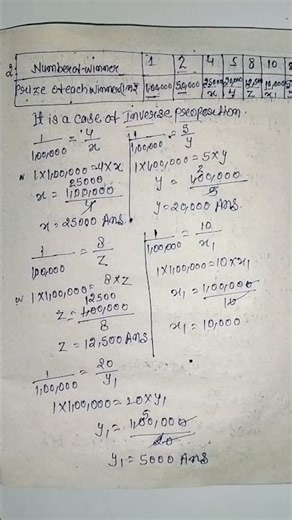 2. Number of winner 1 2 4 5 8 10
Prize of each winner (in ₹) 1,00,000 50,000 25000 20,000 12,500 10,000
It is a case of Inverse preoposition.
1/1,00,000 = 4/x
1×1,00,000 = 4×x
25000
x = 1,00,000/4
x = 25000 Ans.
1/1,00,000 = 5/y
1×1,00,000 = 5×y
y = 1,00,000/5
y = 20,000 Ans.
1/1,00,000 = 8/z
1×1,00,000 = 8×z
12500
z = 1,00,000/8
z = 12,500 Ans
1/1,00,000 = 10/x₁
1×1,00,000 = 10×x₁
x₁ = 1,00,000/10
x₁ = 10,000
1/1,00,000 = 20/y₁
1×1,00,000 = 20×y₁
5
y₁ = 1,00,000/20
y₁ = 5000 Ans